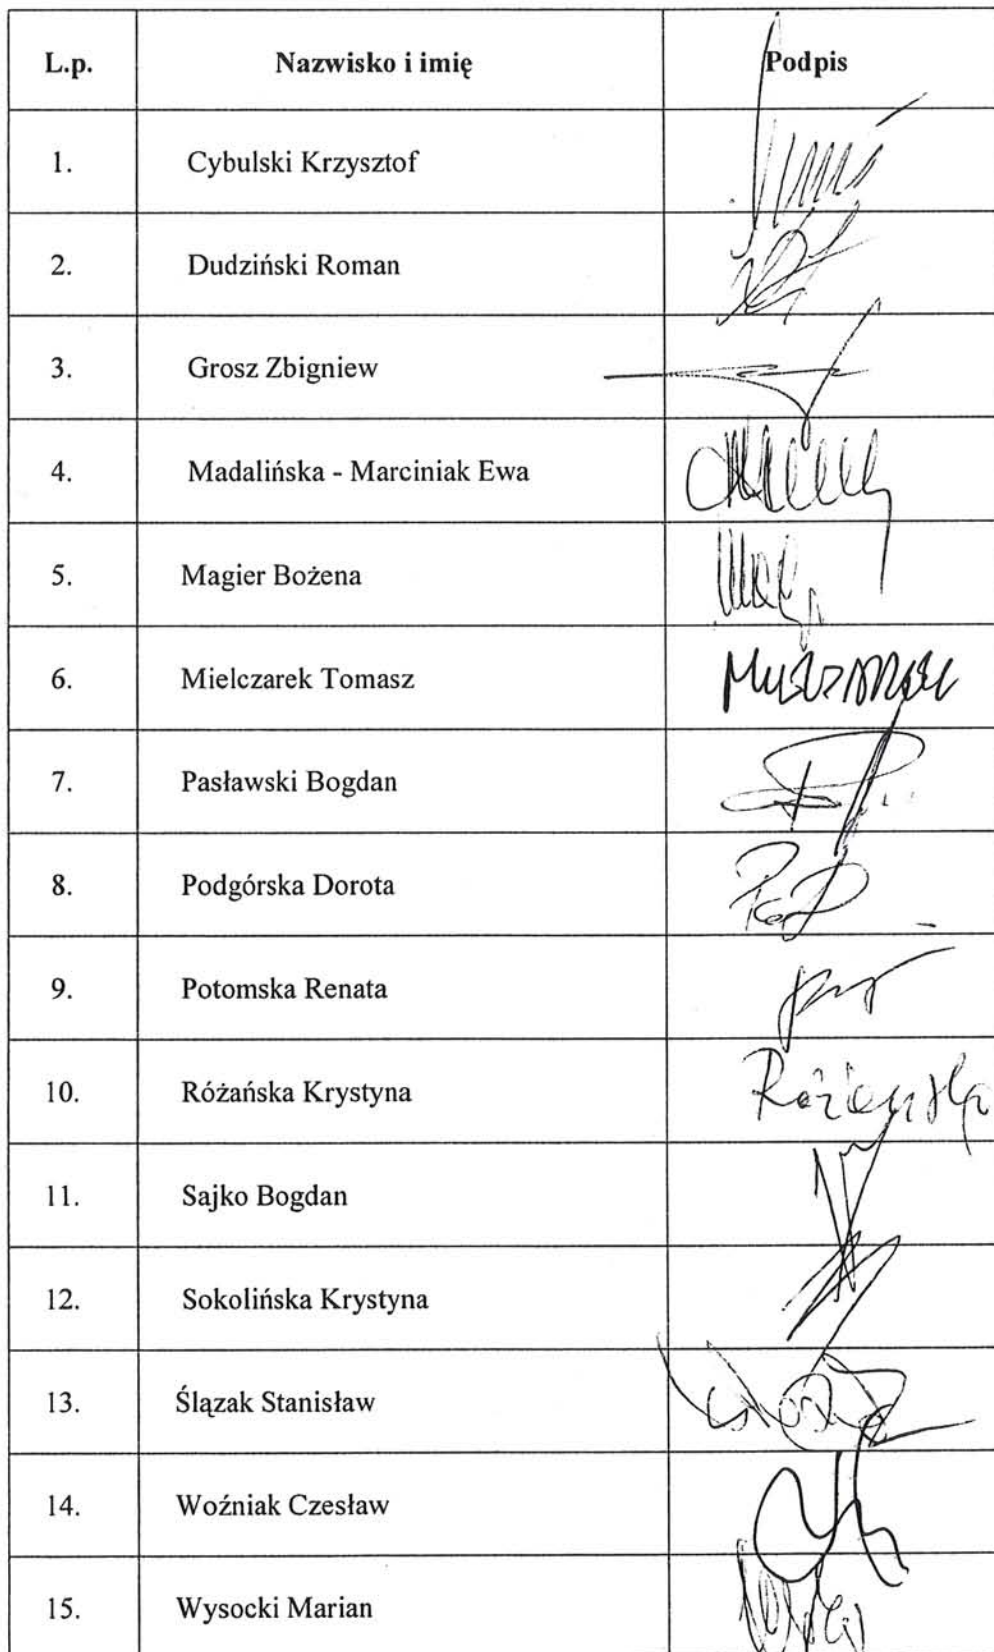 L.p. Nazwisko i imię Podpis
1. Cybulski Krzysztof
2. Dudziński Roman
3. Grosz Zbigniew
4. Madalińska - Marciniak Ewa
5. Magier Bożena
6. Mielczarek Tomasz
7. Pasławski Bogdan
8. Podgórska Dorota
9. Potomska Renata
10. Różańska Krystyna
11. Sajko Bogdan
12. Sokolińska Krystyna
13. Ślązak Stanisław
14. Woźniak Czesław
15. Wysocki Marian